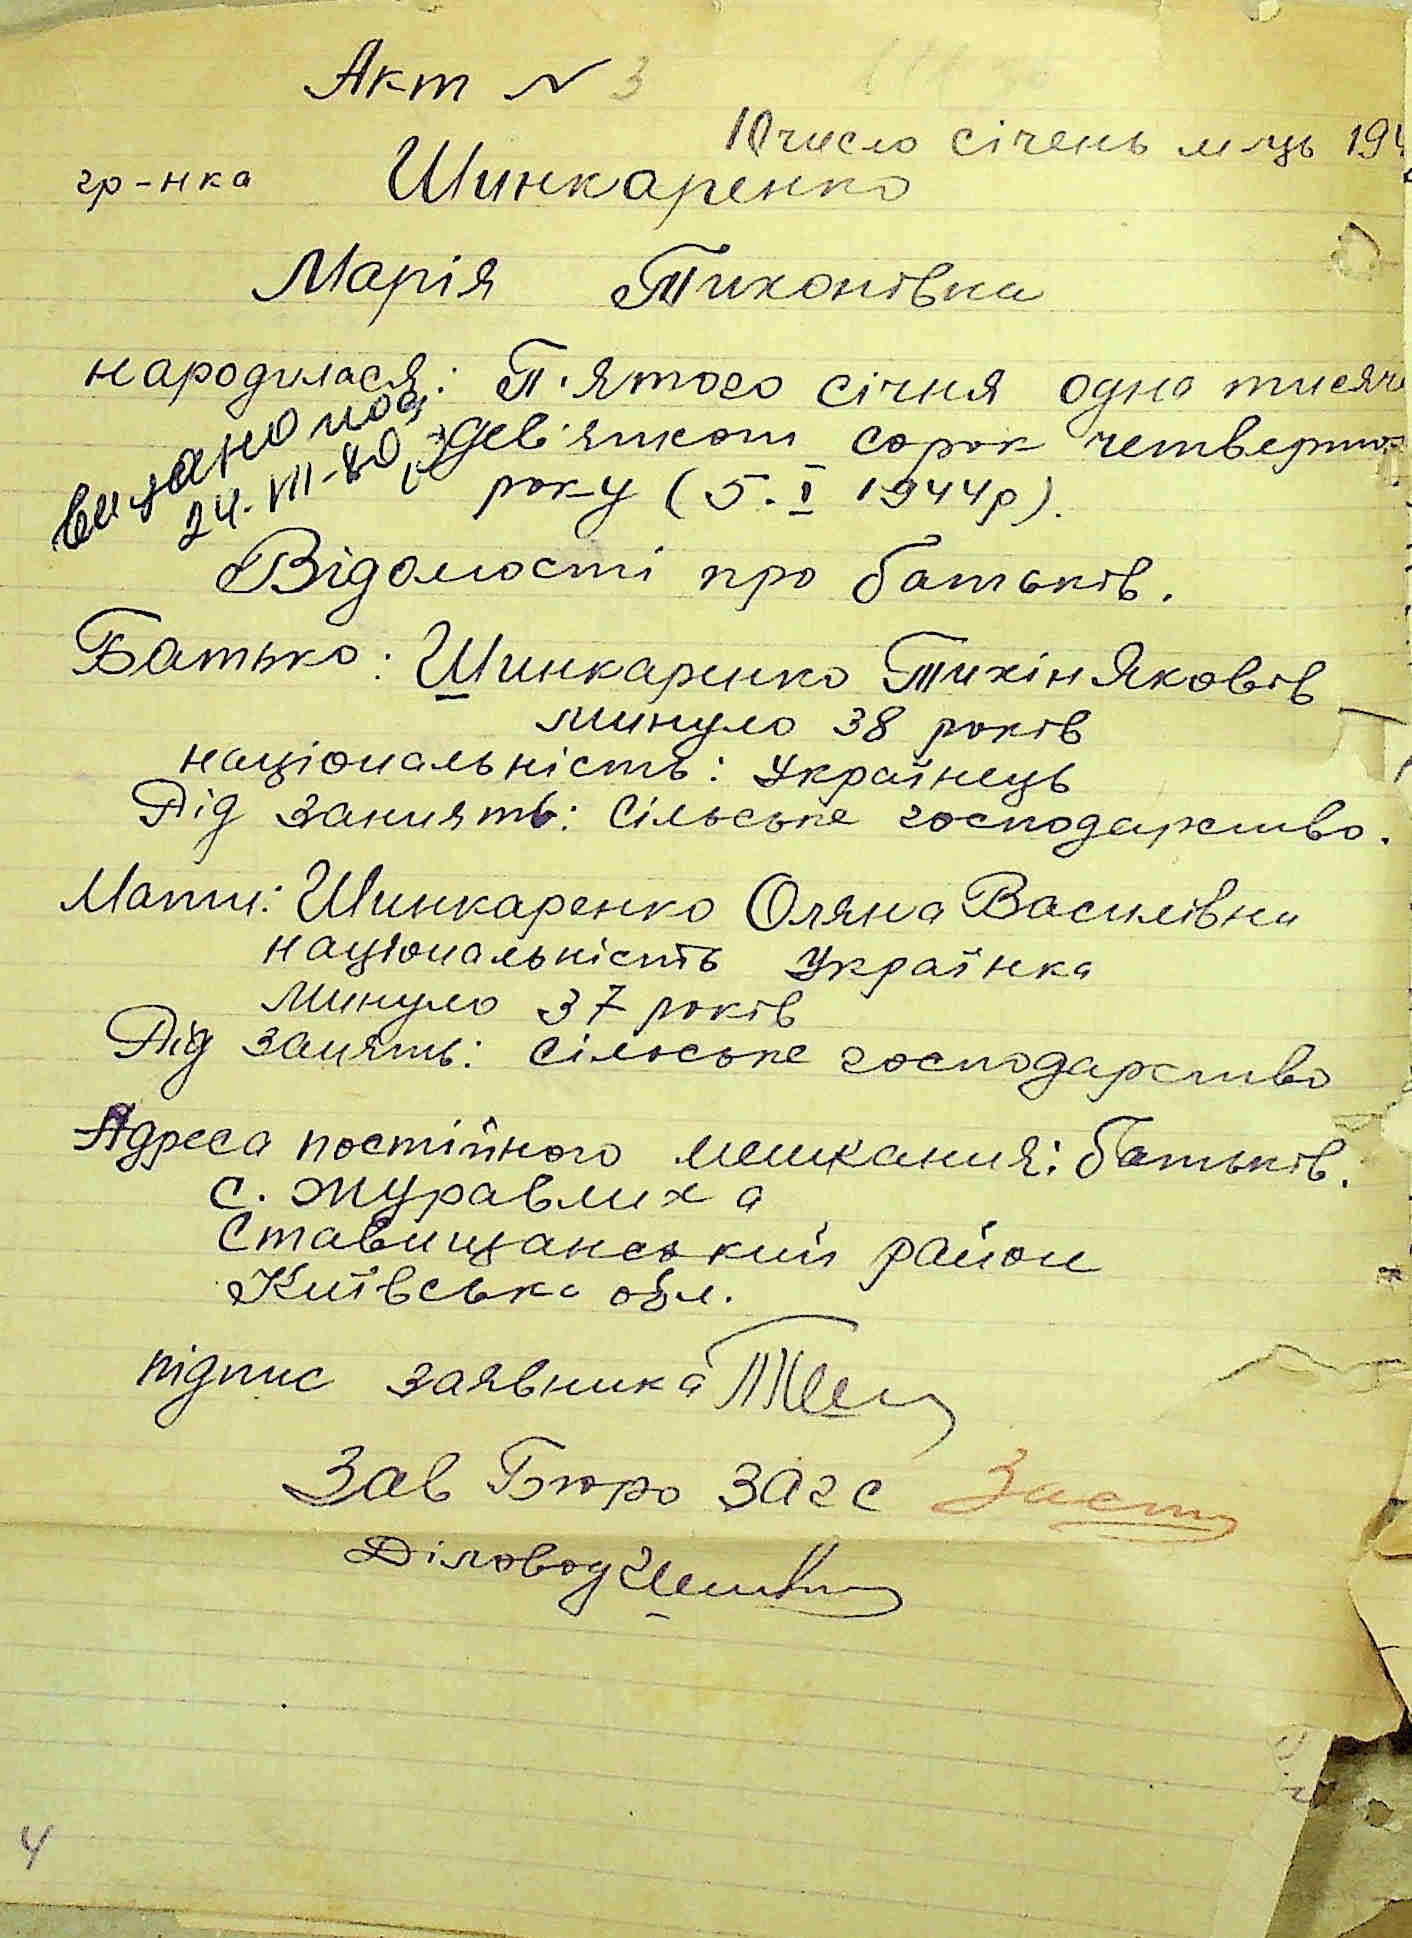 Акт N 3
10 число січень м-ць 194
гр-нка Шинкаренко
Марія Тихонівна
народилася: П'ятого січня одна тисяча
дев'ятсот сорок четвертого
року (5. I 1944р).
видано пов.
24. VII-80
Відомості про батьків.
Батько: Шинкаренко Тихін Яковів
минуло 38 років
національність: Українець
Рід заннять: Сільське господарство.
Мати: Шинкаренко Оляна Василівна
національність Українка
минуло 37 років
Рід занять: Сільське господарство
Адреса постійного мешкання: батьків.
с. Журавлиха
Ставищанський район
Київська обл.
підпис заявника
Зав Бюро Загс
Діловод
4